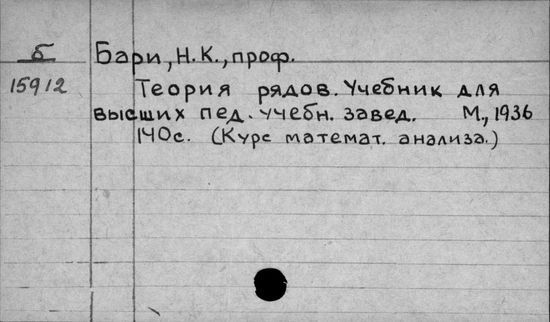 Б
15912
Бари, Н. К., проф.
Теория рядов. Учебник для
высших пед. учебн. завед. М., 1936
140с. (Курс математ. анализа.)